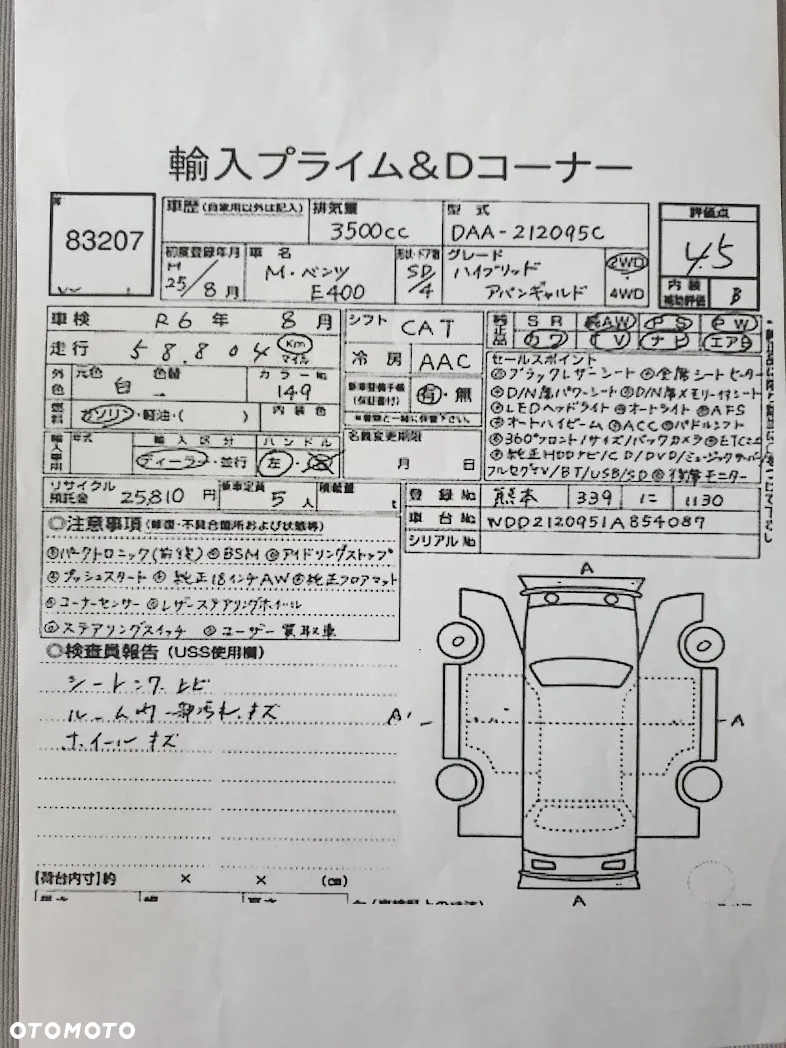 輸入プライム&Dコーナー
83207
車歴(自家用以外は記入)
排気量
3500cc
型式
DAA-212095C
評価点
4.5
初度登録年月
H
25/8月
車名
M・ベンツ
E400
形状・ドア数
SD/4
グレード
ハイブリッド
アバンギャルド
2WD
4WD
内装
補助評価
B
車検
R6年 8月
走行
58,804
Km
マイル
シフト
CAT
冷房
AAC
純正品
SR AW PS PW
カワ TV ナビ エアB
外色
元色
白
色替
カラーNo
149
新車整備手帳
(保証書付)
有・無
燃料
ガソリン・軽油・( )
内装色
輸入車用
年式
輸入区分
ディーラー・並行
ハンドル
左・右
名義変更期限
月 日
セールスポイント
◎ブラックレザーシート◎全席シートヒーター
◎D/N席パワーシート◎D/N席メモリー付シート
◎LEDヘッドライト◎オートライト◎AFS
◎オートハイビーム◎ACC◎パドルシフト
◎360°フロント/サイド/バックカメラ◎ETC2.0
◎純正HDDナビ/CD/DVD/ミュージックサーバー
フルセグTV/BT/USB/SD◎後席モニター
リサイクル
預託金
25,810円
乗車定員
5人
積載量
t
登録No
熊本 339 に 1130
車台No
WDD2120951A854087
シリアルNo
◎注意事項(修復・不具合箇所および状態等)
◎パークトロニック(前後)◎BSM◎アイドリングストップ
◎プッシュスタート◎純正18インチAW◎純正フロアマット
◎コーナーセンサー◎レザーステアリングホイール
◎ステアリングスイッチ◎ユーザー買取車
◎検査員報告(USS使用欄)
ルーム内一部汚れ、キズ
ホイールキズ
A
A'
A
A
[荷台内寸]約 × × (cm)
OTOMOTO